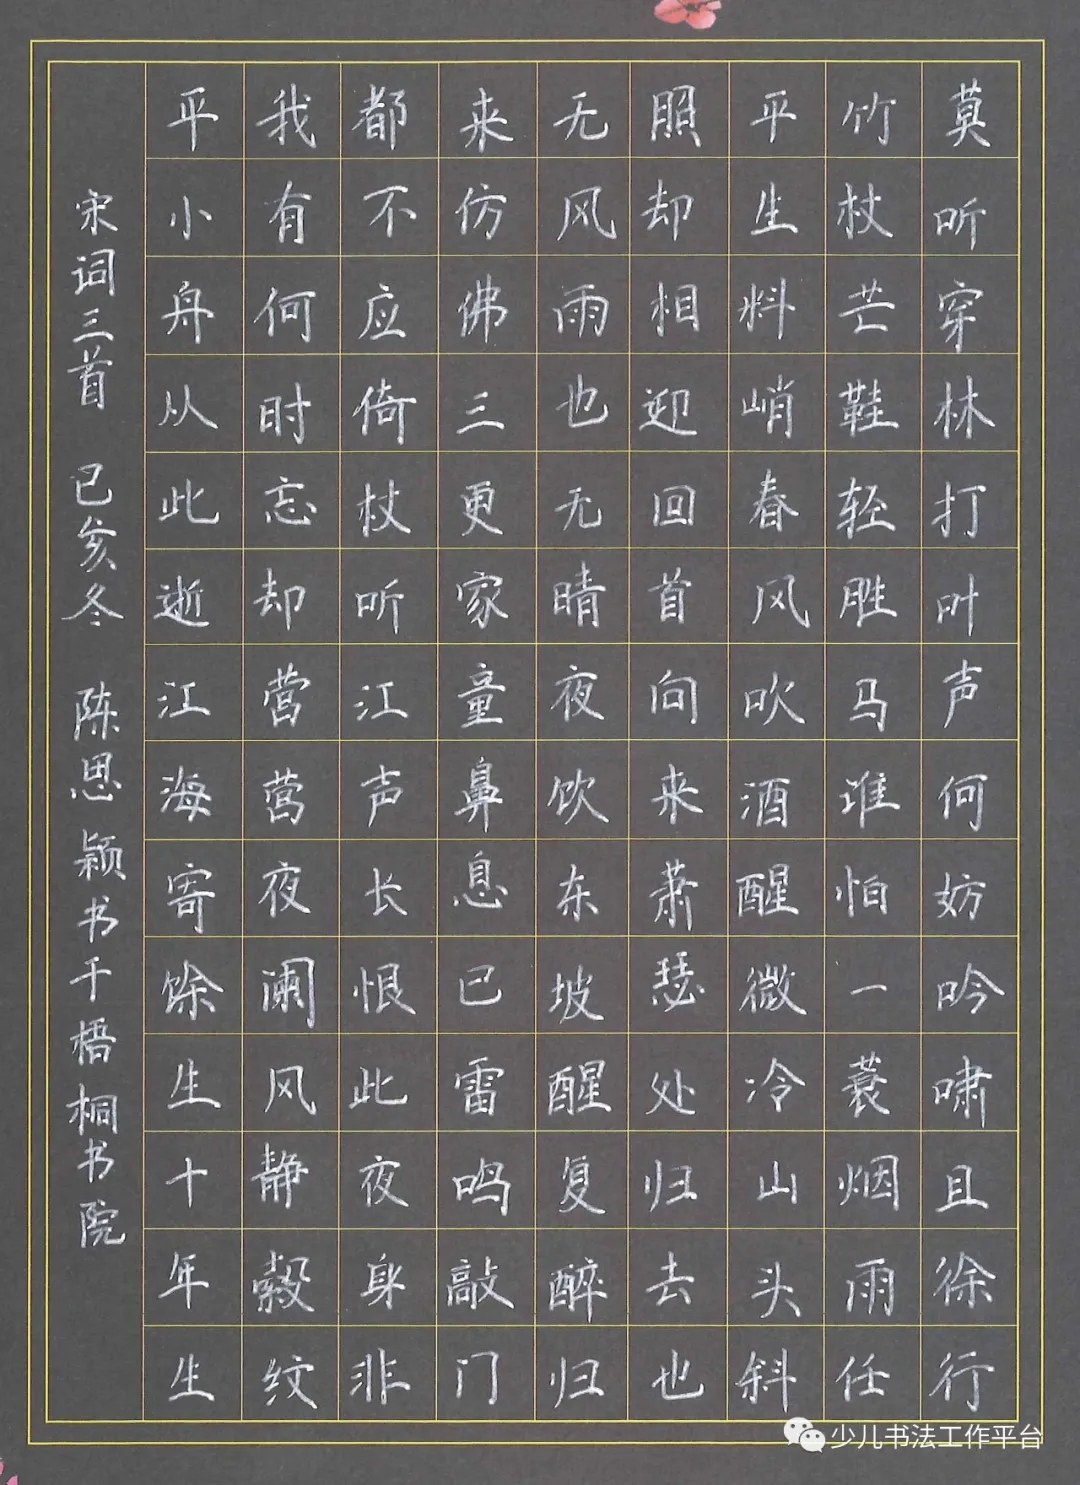 莫听穿林打叶声何妨吟啸且徐行
竹杖芒鞋轻胜马谁怕一蓑烟雨任
平生料峭春风吹酒醒微冷山头斜
照却相迎回首向来萧瑟处归去也
无风雨也无晴夜饮东坡醒复醉归
来仿佛三更家童鼻息已雷鸣敲门
都不应倚杖听江声长恨此夜身非
我有何时忘却营营夜阑风静縠纹
平小舟从此逝江海寄馀生十年生
宋词三首 己亥冬 陈思颖书于梧桐书院
少儿书法工作平台